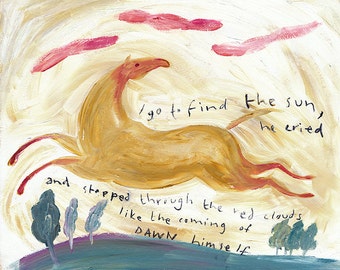 I go to find the sun,
he cried
and stepped through the red clouds
like the coming of
DAWN himself